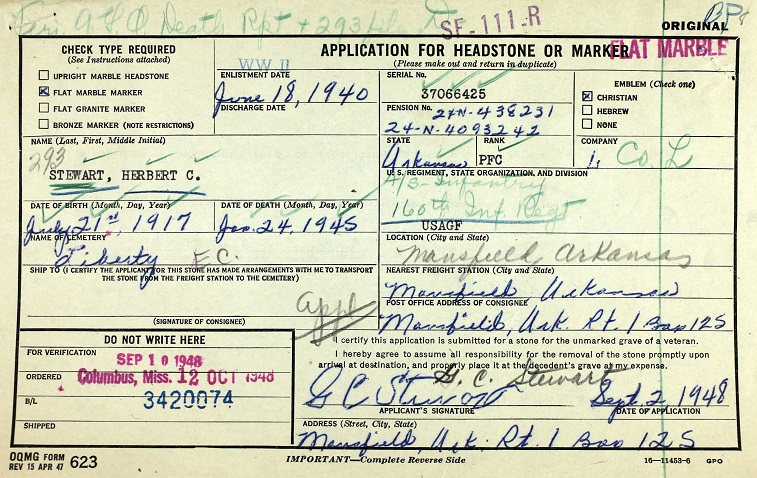 A G O Death Rpt + 293 file
SF-111-R
ORIGINAL
BP
CHECK TYPE REQUIRED
(See Instructions attached)
UPRIGHT MARBLE HEADSTONE
FLAT MARBLE MARKER
FLAT GRANITE MARKER
BRONZE MARKER (NOTE RESTRICTIONS)
WW II
APPLICATION FOR HEADSTONE OR MARKER
FLAT MARBLE
(Please make out and return in duplicate)
ENLISTMENT DATE
June 18, 1940
DISCHARGE DATE
SERIAL No.
37066425
PENSION No.
24-N-438231
24-N-4093242
EMBLEM (Check one)
CHRISTIAN
HEBREW
NONE
NAME (Last, First, Middle Initial)
293
STEWART, HERBERT C.
STATE
Arkansas
RANK
PFC
COMPANY
L Co. L
U. S. REGIMENT, STATE ORGANIZATION, AND DIVISION
A/S-Infantry
160th Inf Regt
USAGF
DATE OF BIRTH (Month, Day, Year)
July 21st, 1917
DATE OF DEATH (Month, Day, Year)
Jan. 24, 1945
NAME OF CEMETERY
Liberty E.C.
LOCATION (City and State)
Mansfield, Arkansas
SHIP TO (I CERTIFY THE APPLICANT FOR THIS STONE HAS MADE ARRANGEMENTS WITH ME TO TRANSPORT
THE STONE FROM THE FREIGHT STATION TO THE CEMETERY)
Appl
(SIGNATURE OF CONSIGNEE)
NEAREST FREIGHT STATION (City and State)
Mansfield Arkansas
POST OFFICE ADDRESS OF CONSIGNEE
Mansfield, Ark. Rt. 1 Box 125
DO NOT WRITE HERE
FOR VERIFICATION
SEP 10 1948
ORDERED
Columbus, Miss. 12 OCT 1948
B/L
3420074
SHIPPED
I certify this application is submitted for a stone for the unmarked grave of a veteran.
I hereby agree to assume all responsibility for the removal of the stone promptly upon
arrival at destination, and properly place it at the decedent's grave at my expense.
G C Stewart G. C. Stewart Sept. 2, 1948
APPLICANT'S SIGNATURE
DATE OF APPLICATION
ADDRESS (Street, City, State)
Mansfield, Ark. Rt. 1 Box 125
OQMG FORM
REV 15 APR 47 623
IMPORTANT—Complete Reverse Side
16—11453-6 GPO